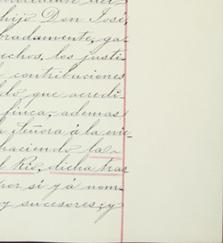 hijo Don José,
tradamente, ga-
echos, los justi-
contribuciones
do que acredi-
finca; ademas
tenora á la evic-
haciendo la
l Rio, dicha tras
por si y á nom-
y sucesores; y